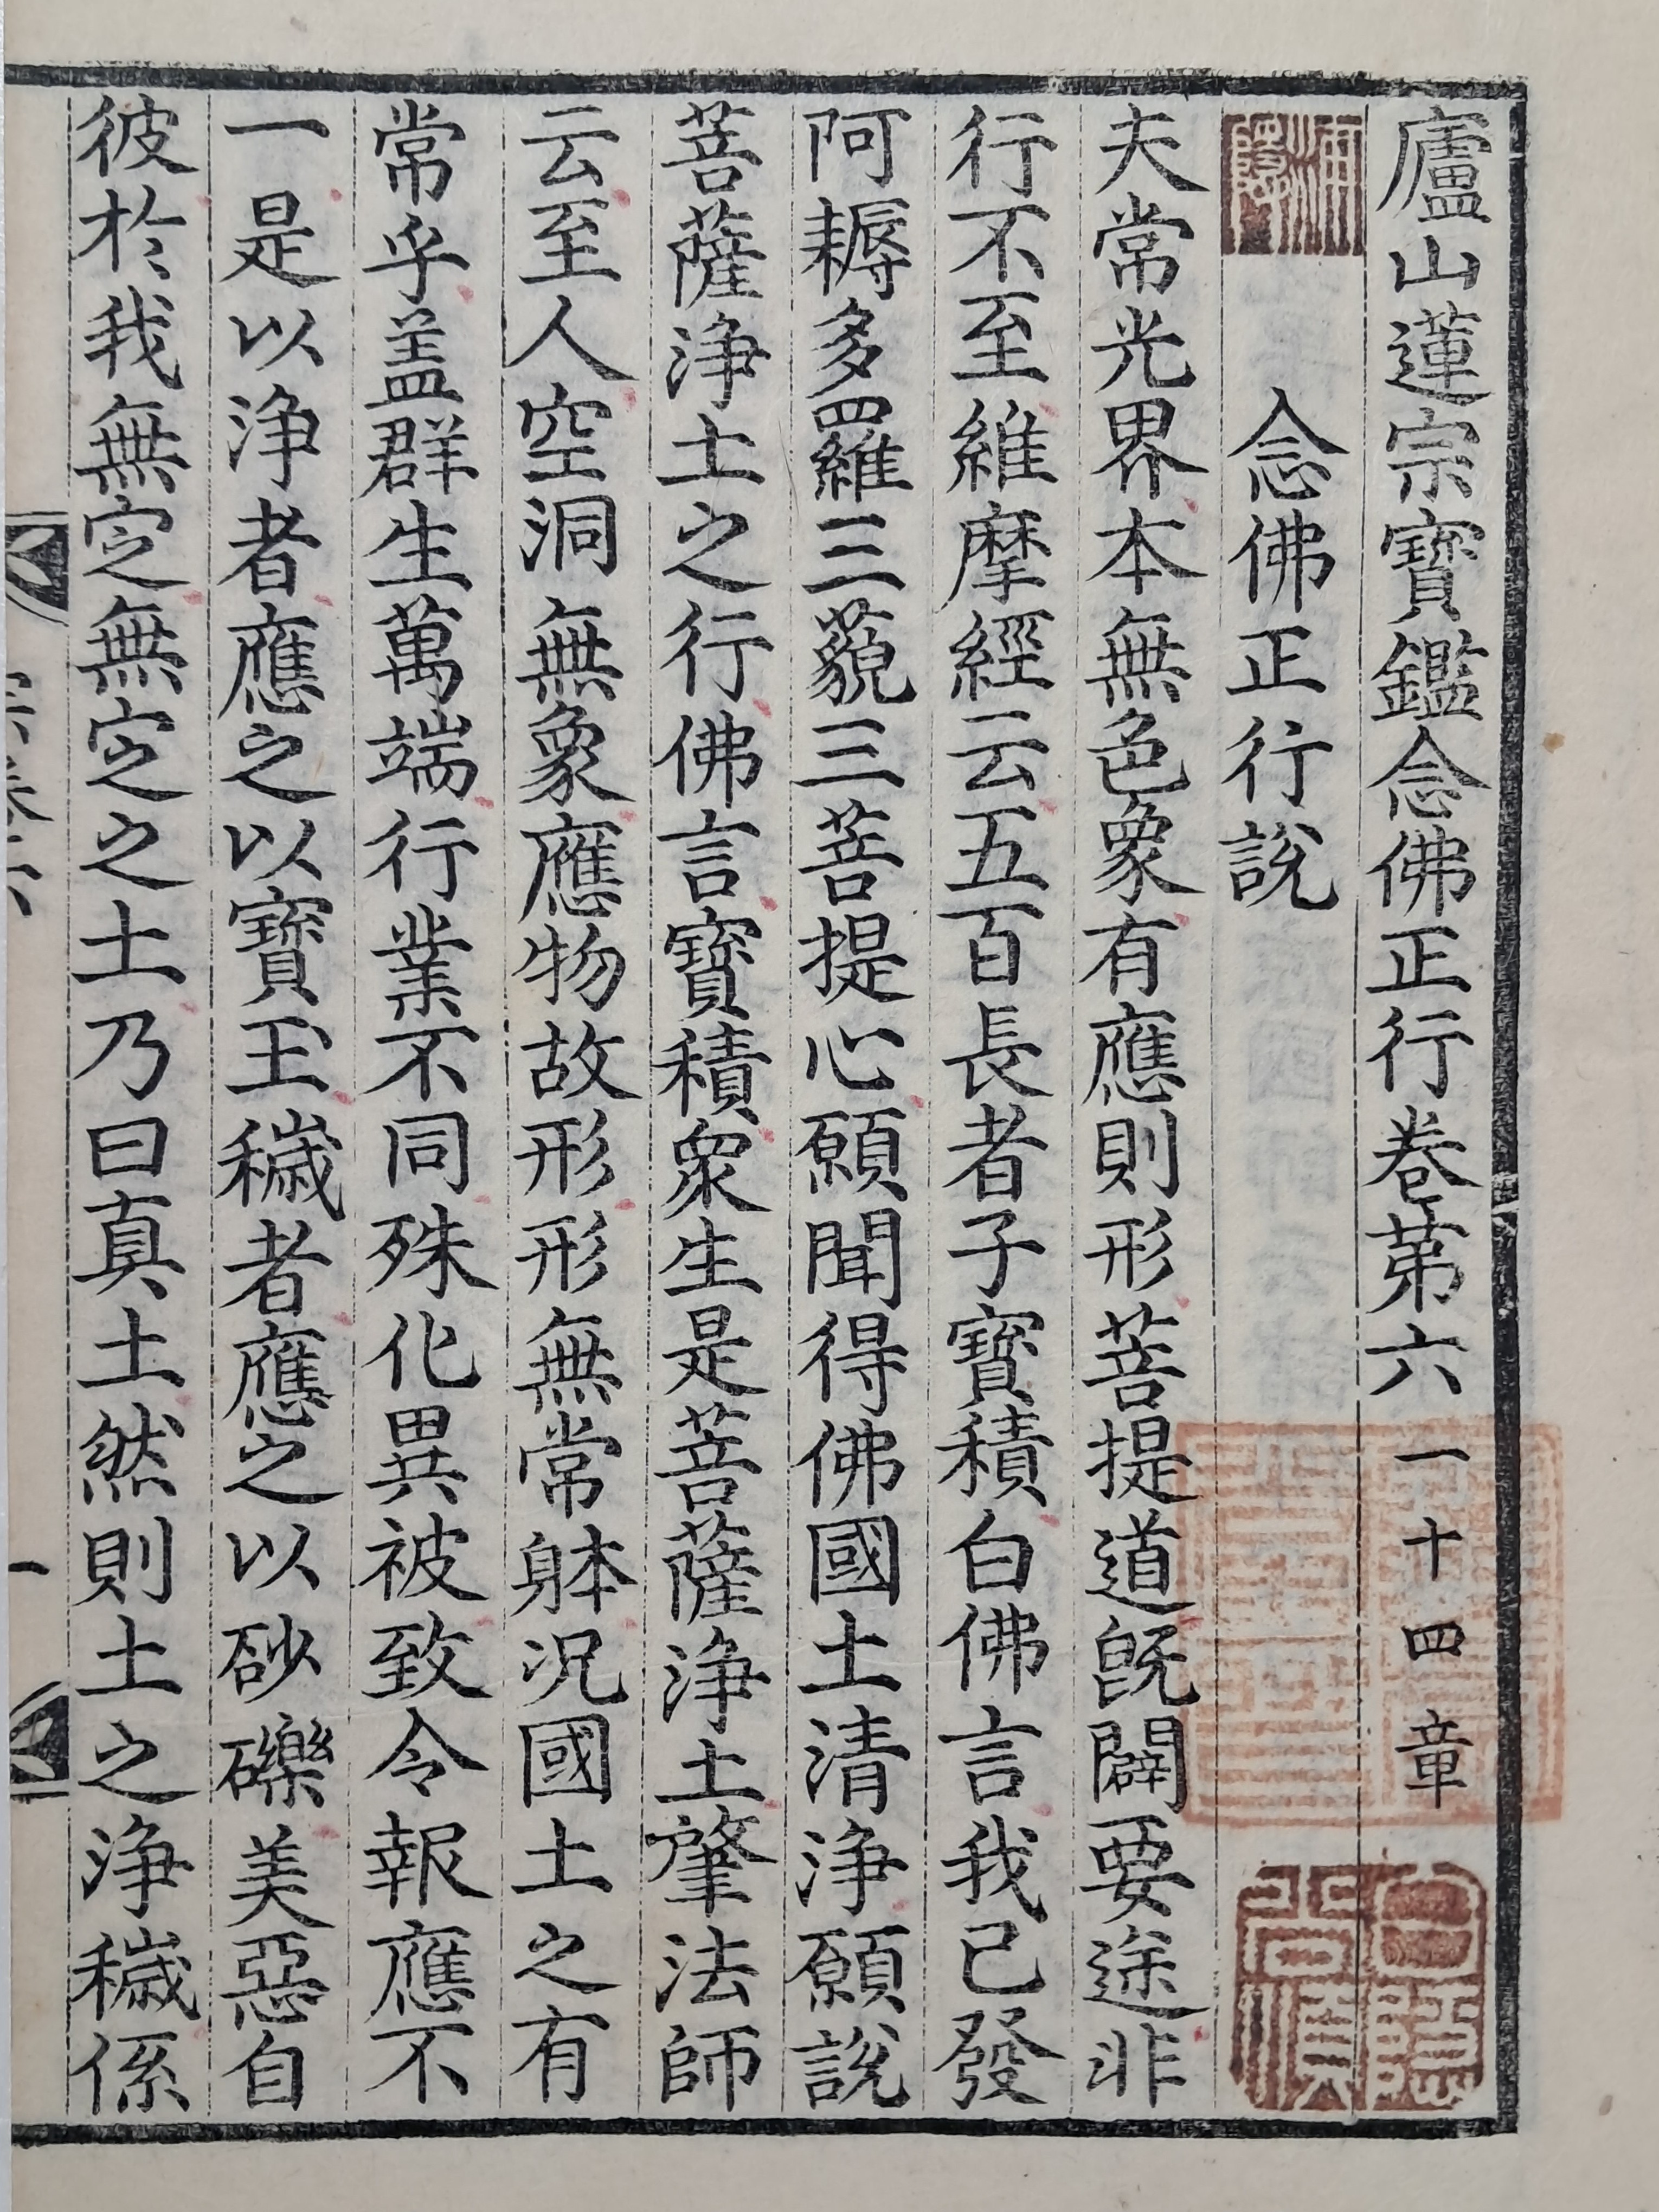 廬山蓮宗寶鑑念佛正行卷第六 一十四章
念佛正行說
夫常光界本無色象有應則形菩提道旣闢要途非
行不至維摩經云五百長者子寶積白佛言我已發
阿耨多羅三藐三菩提心願聞得佛國土清淨願說
菩薩淨土之行佛言寶積衆生是菩薩淨土肇法師
云至人空洞無象應物故形形無常躰況國土之有
常乎盖群生萬端行業不同殊化異被致令報應不
一是以淨者應之以寶玉穢者應之以砂礫美惡自
彼於我無定無定之土乃曰真土然則土之淨穢係